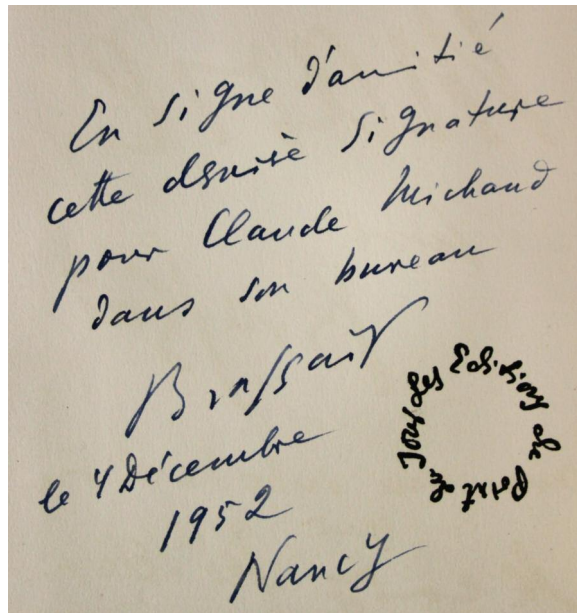 En signe d'amitié
cette dernière signature
pour Claude Michaud
dans son bureau
Brassaï
le 4 Décembre
1952
Nancy
les Editions du Point du Jour